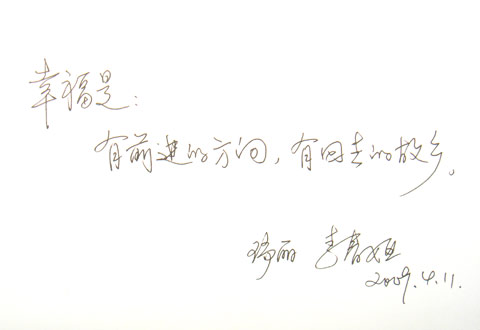 幸福是：
有前进的方向，有回去的故乡。
瑞丽 李春妲
2009.4.11.